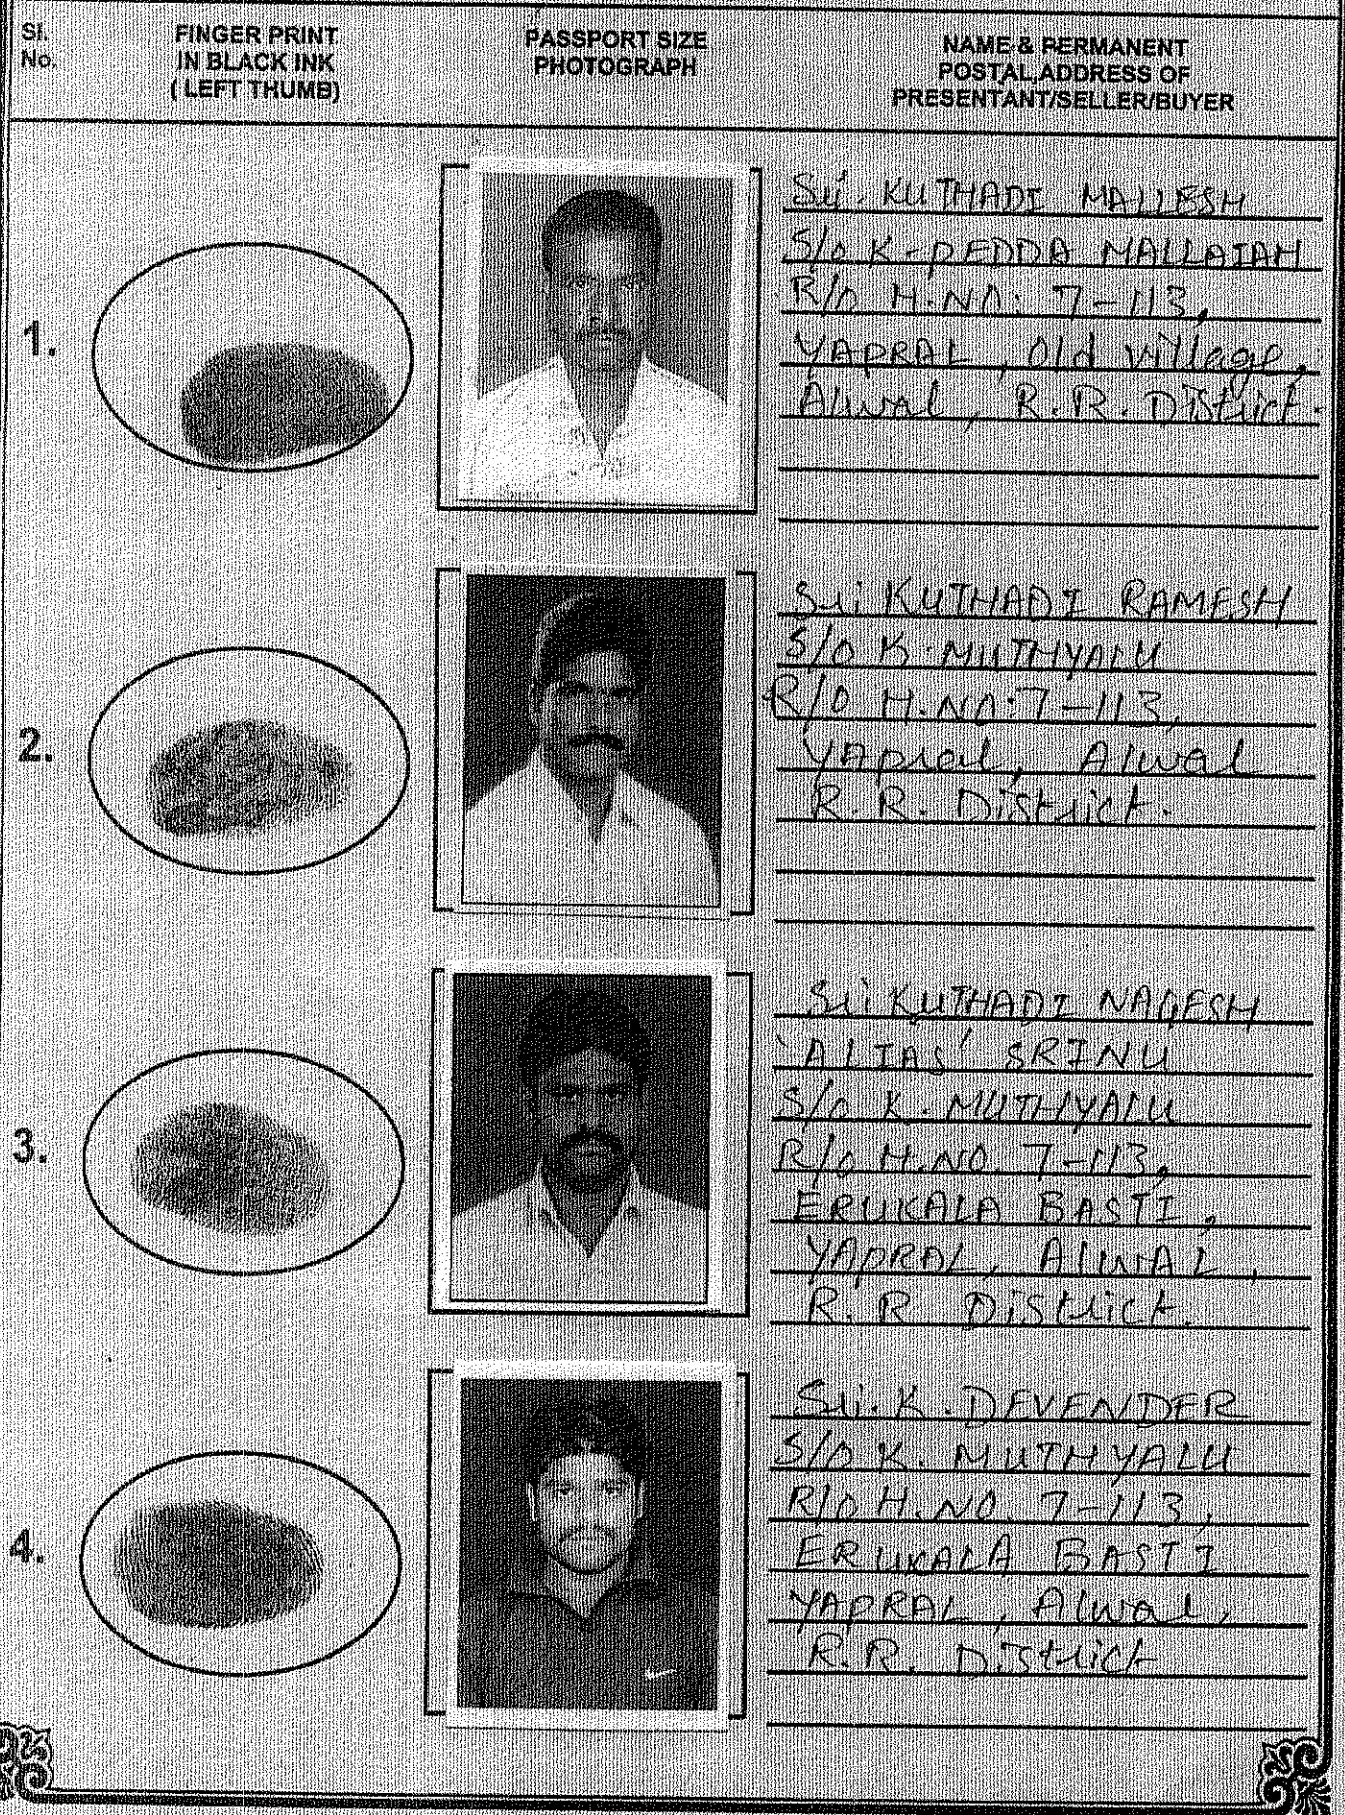 Sl.
No.
FINGER PRINT
IN BLACK INK
( LEFT THUMB)
PASSPORT SIZE
PHOTOGRAPH
NAME & PERMANENT
POSTAL ADDRESS OF
PRESENTANT/SELLER/BUYER
1.
Sri. KUTHADI MALLESH
S/o K-PEDDA MALLAIAH
R/o H.NO. 7-113,
YAPRAL, Old village,
Alwal, R.R. District.
2.
Sri KUTHADI RAMESH
S/o K. MUTHYALU
R/o H.NO. 7-113,
YAPral, Alwal
R.R. District.
3.
Sri KUTHADI NAGESH
'ALIAS' SRINU
S/o K. MUTHYALU
R/o H.NO. 7-113,
ERUKALA BASTI,
YAPRAL, AlWAL,
R.R District.
4.
Sri. K. DEVENDER
S/o K. MUTHYALU
R/o H.NO. 7-113,
ERUKALA BASTI
YAPRAL, Alwal,
R.R. District